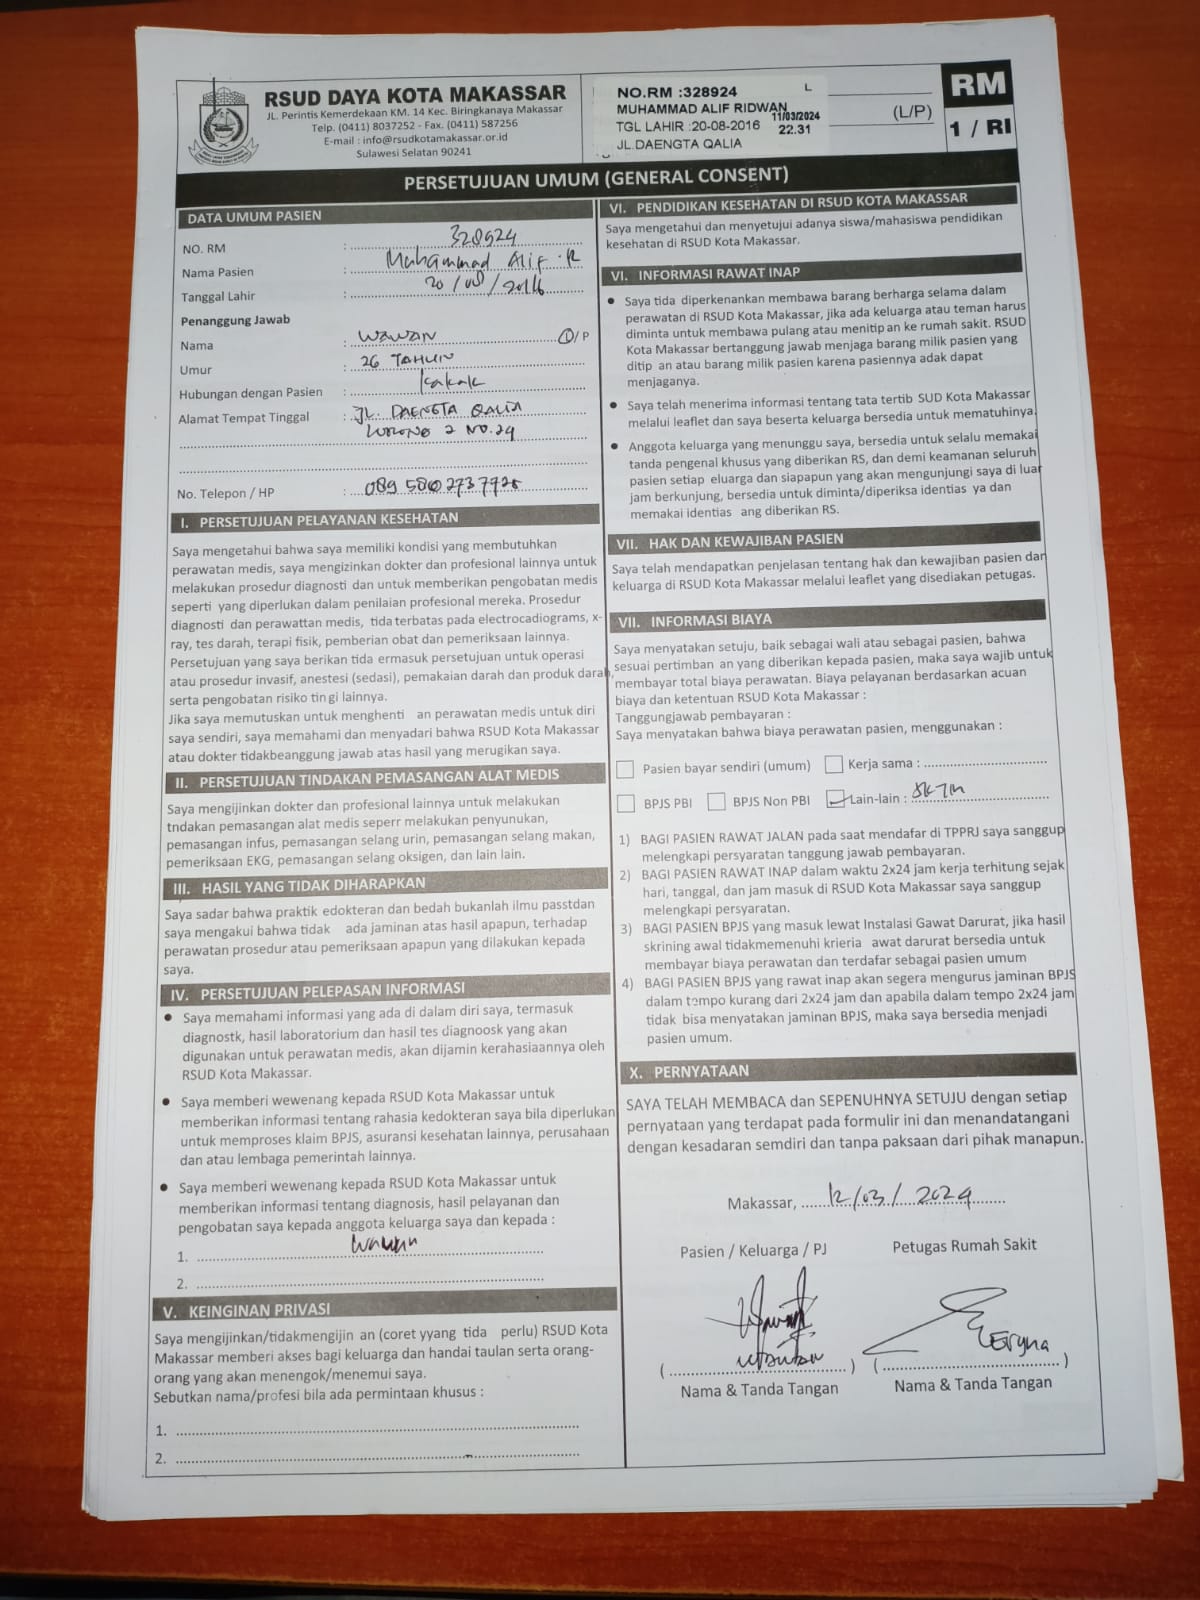 RSUD DAYA KOTA MAKASSAR
JL. Perintis Kemerdekaan KM. 14 Kec. Biringkanaya Makassar
Telp. (0411) 8037252 - Fax. (0411) 587256
E-mail : info@rsudkotamakassar.or.id
Sulawesi Selatan 90241
NO.RM :328924 L
MUHAMMAD ALIF RIDWAN
11/03/2024
TGL LAHIR :20-08-2016 22.31
JL.DAENGTA QALIA
(L/P)
RM
1 / RI
PERSETUJUAN UMUM (GENERAL CONSENT)
DATA UMUM PASIEN
NO. RM : 328924
Nama Pasien : Muhammad Alif .R
Tanggal Lahir : 20/08/2016
Penanggung Jawab
Nama : WAWAN L/P
Umur : 26 TAHUN
Hubungan dengan Pasien : kakak
Alamat Tempat Tinggal : JL. DAENGTA QALIA
LORONG 2 NO.24
No. Telepon / HP :
I. PERSETUJUAN PELAYANAN KESEHATAN
Saya mengetahui bahwa saya memiliki kondisi yang membutuhkan
perawatan medis, saya mengizinkan dokter dan profesional lainnya untuk
melakukan prosedur diagnosti dan untuk memberikan pengobatan medis
seperti yang diperlukan dalam penilaian profesional mereka. Prosedur
diagnosti dan perawattan medis, tida terbatas pada electrocadiograms, x-
ray, tes darah, terapi fisik, pemberian obat dan pemeriksaan lainnya.
Persetujuan yang saya berikan tida ermasuk persetujuan untuk operasi
atau prosedur invasif, anestesi (sedasi), pemakaian darah dan produk darah,
serta pengobatan risiko tin gi lainnya.
Jika saya memutuskan untuk menghenti an perawatan medis untuk diri
saya sendiri, saya memahami dan menyadari bahwa RSUD Kota Makassar
atau dokter tidakbeanggung jawab atas hasil yang merugikan saya.
II. PERSETUJUAN TINDAKAN PEMASANGAN ALAT MEDIS
Saya mengijinkan dokter dan profesional lainnya untuk melakukan
tndakan pemasangan alat medis seperr melakukan penyunukan,
pemasangan infus, pemasangan selang urin, pemasangan selang makan,
pemeriksaan EKG, pemasangan selang oksigen, dan lain lain.
III. HASIL YANG TIDAK DIHARAPKAN
Saya sadar bahwa praktik edokteran dan bedah bukanlah ilmu passtdan
saya mengakui bahwa tidak ada jaminan atas hasil apapun, terhadap
perawatan prosedur atau pemeriksaan apapun yang dilakukan kepada
saya.
IV. PERSETUJUAN PELEPASAN INFORMASI
● Saya memahami informasi yang ada di dalam diri saya, termasuk
diagnostk, hasil laboratorium dan hasil tes diagnoosk yang akan
digunakan untuk perawatan medis, akan dijamin kerahasiaannya oleh
RSUD Kota Makassar.
● Saya memberi wewenang kepada RSUD Kota Makassar untuk
memberikan informasi tentang rahasia kedokteran saya bila diperlukan
untuk memproses klaim BPJS, asuransi kesehatan lainnya, perusahaan
dan atau lembaga pemerintah lainnya.
● Saya memberi wewenang kepada RSUD Kota Makassar untuk
memberikan informasi tentang diagnosis, hasil pelayanan dan
pengobatan saya kepada anggota keluarga saya dan kepada :
1. Wawan
2.
V. KEINGINAN PRIVASI
Saya mengijinkan/tidakmengijin an (coret yyang tida perlu) RSUD Kota
Makassar memberi akses bagi keluarga dan handai taulan serta orang-
orang yang akan menengok/menemui saya.
Sebutkan nama/profesi bila ada permintaan khusus :
1.
2.
VI. PENDIDIKAN KESEHATAN DI RSUD KOTA MAKASSAR
Saya mengetahui dan menyetujui adanya siswa/mahasiswa pendidikan
kesehatan di RSUD Kota Makassar.
VI. INFORMASI RAWAT INAP
● Saya tida diperkenankan membawa barang berharga selama dalam
perawatan di RSUD Kota Makassar, jika ada keluarga atau teman harus
diminta untuk membawa pulang atau menitip an ke rumah sakit. RSUD
Kota Makassar bertanggung jawab menjaga barang milik pasien yang
ditip an atau barang milik pasien karena pasiennya adak dapat
menjaganya.
● Saya telah menerima informasi tentang tata tertib SUD Kota Makassar
melalui leaflet dan saya beserta keluarga bersedia untuk mematuhinya.
● Anggota keluarga yang menunggu saya, bersedia untuk selalu memakai
tanda pengenal khusus yang diberikan RS, dan demi keamanan seluruh
pasien setiap eluarga dan siapapun yang akan mengunjungi saya di luar
jam berkunjung, bersedia untuk diminta/diperiksa identias ya dan
memakai identias ang diberikan RS.
VII. HAK DAN KEWAJIBAN PASIEN
Saya telah mendapatkan penjelasan tentang hak dan kewajiban pasien dan
keluarga di RSUD Kota Makassar melalui leaflet yang disediakan petugas.
VII. INFORMASI BIAYA
Saya menyatakan setuju, baik sebagai wali atau sebagai pasien, bahwa
sesuai pertimban an yang diberikan kepada pasien, maka saya wajib untuk
membayar total biaya perawatan. Biaya pelayanan berdasarkan acuan
biaya dan ketentuan RSUD Kota Makassar :
Tanggungjawab pembayaran :
Saya menyatakan bahwa biaya perawatan pasien, menggunakan :
Pasien bayar sendiri (umum) Kerja sama :
BPJS PBI BPJS Non PBI Lain-lain : SKTM
1) BAGI PASIEN RAWAT JALAN pada saat mendafar di TPPRJ saya sanggup
melengkapi persyaratan tanggung jawab pembayaran.
2) BAGI PASIEN RAWAT INAP dalam waktu 2x24 jam kerja terhitung sejak
hari, tanggal, dan jam masuk di RSUD Kota Makassar saya sanggup
melengkapi persyaratan.
3) BAGI PASIEN BPJS yang masuk lewat Instalasi Gawat Darurat, jika hasil
skrining awal tidakmemenuhi krieria awat darurat bersedia untuk
membayar biaya perawatan dan terdafar sebagai pasien umum
4) BAGI PASIEN BPJS yang rawat inap akan segera mengurus jaminan BPJS
dalam tempo kurang dari 2x24 jam dan apabila dalam tempo 2x24 jam
tidak bisa menyatakan jaminan BPJS, maka saya bersedia menjadi
pasien umum.
X. PERNYATAAN
SAYA TELAH MEMBACA dan SEPENUHNYA SETUJU dengan setiap
pernyataan yang terdapat pada formulir ini dan menandatangani
dengan kesadaran semdiri dan tanpa paksaan dari pihak manapun.
Makassar, 12/03/2024
Pasien / Keluarga / PJ Petugas Rumah Sakit
Nama & Tanda Tangan Nama & Tanda Tangan